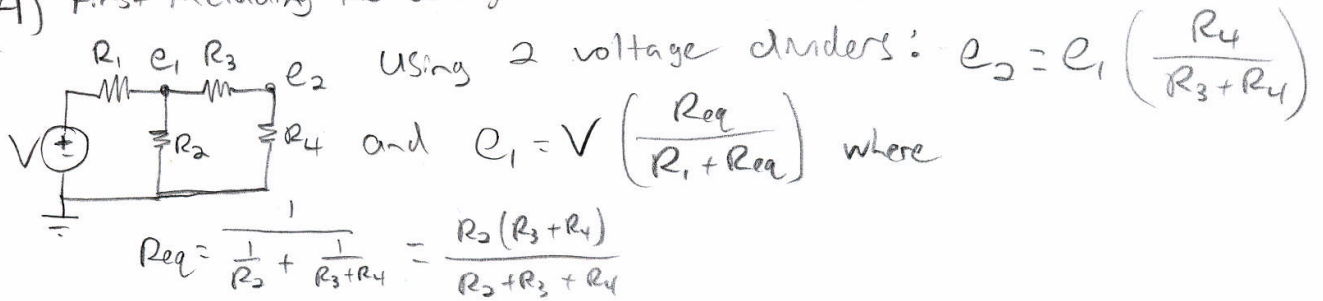 4) First including
R₁ e₁ R₃ e₂ Using 2 voltage dividers: e₂ = e₁ (R₄ / (R₃ + R₄))
V + R₂ R₄ and e₁ = V (Req / (R₁ + Req)) where
Req = 1 / (1/R₂ + 1/(R₃+R₄)) = R₂(R₃+R₄) / (R₂+R₃+R₄)